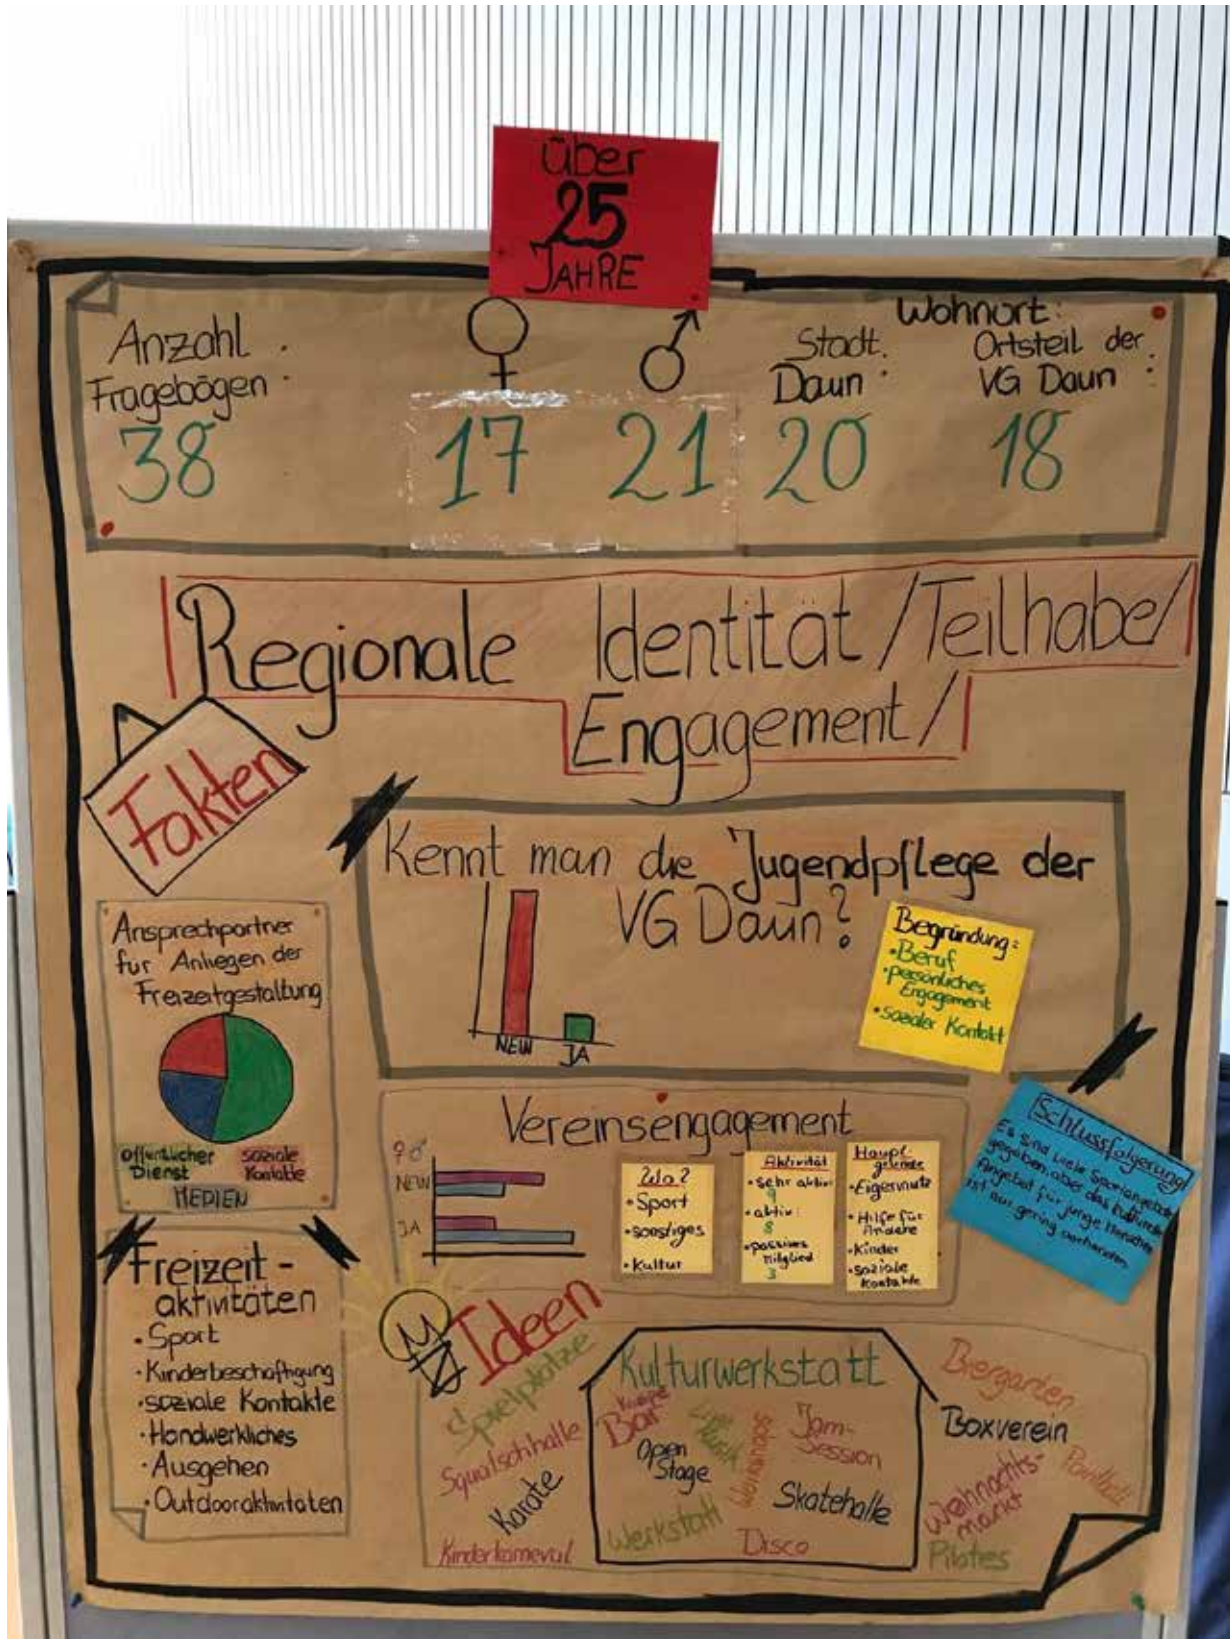 über
25
JAHRE
Anzahl
Fragebögen:
38
♀
17
♂
21
Wohnort:
Stadt
Daun:
20
Ortsteil der
VG Daun:
18
Regionale Identität/Teilhabe/
Engagement/
Fakten
Kennt man die Jugendpflege der
VG Daun?
NEIN
JA
Begründung:
•Beruf
•persönliches
Engagement
•sozialer Kontakt
Ansprechpartner
für Anliegen der
Freizeitgestaltung
öffentlicher
Dienst
soziale
Kontakte
MEDIEN
Vereinsengagement
♀♂
NEIN
JA
Wo?
•Sport
•sonstiges
•Kultur
Aktivität
•sehr aktiv:
9
•aktiv:
8
•passives
Mitglied
3
Haupt-
gründe
•Eigennutz
•Hilfe für
Andere
•Kinder
•soziale
Kontakte
Schlussfolgerung
Es sind viele Sportangebote
gegeben, aber das kulturelle
Angebot für junge Menschen
ist nur gering vorhanden.
Freizeit-
aktivitäten
•Sport
•Kinderbeschäftigung
•soziale Kontakte
•Handwerkliches
•Ausgehen
•Outdooraktivitäten
Ideen
Spielplätze
Squashhalle
Karate
Kinderkarneval
Kulturwerkstatt
Kneipe
Bar
Open
Stage
Workshops
Jam-
Session
Skatehalle
Werkstatt
Disco
Biergarten
Boxverein
Paintball
Weihnachts-
markt
Pilates